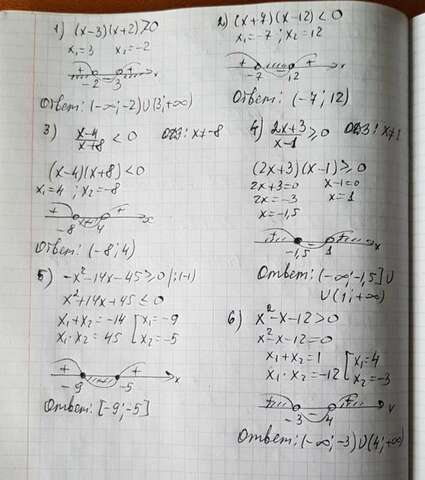 1) (x-3)(x+2)>0
x₁=3 x₂=-2
+ - +
-2 3 x
Ответ: (-∞;-2)∪(3;+∞)
2) (x+7)(x-12)<0
x₁=-7; x₂=12
+ - +
-7 12 x
Ответ: (-7; 12)
3) (x-4)/(x+8) < 0 ОДЗ: x≠-8
(x-4)(x+8)<0
x₁=4; x₂=-8
+ - +
-8 4 x
Ответ: (-8; 4)
4) (2x+3)/(x-1) ≥ 0 ОДЗ: x≠1
(2x+3)(x-1)≥0
2x+3=0 x-1=0
2x=-3 x=1
x=-1,5
-1,5 1 x
Ответ: (-∞;-1,5]∪
∪(1;+∞)
5) -x²-14x-45≥0 |:(-1)
x²+14x+45≤0
x₁+x₂=-14 [x₁=-9
x₁·x₂=45 [x₂=-5
+ - +
-9 -5 x
Ответ: [-9;-5]
6) x²-x-12>0
x²-x-12=0
x₁+x₂=1 [x₁=4
x₁·x₂=-12 [x₂=-3
+ - +
-3 4
Ответ: (-∞;-3)∪(4;+∞)